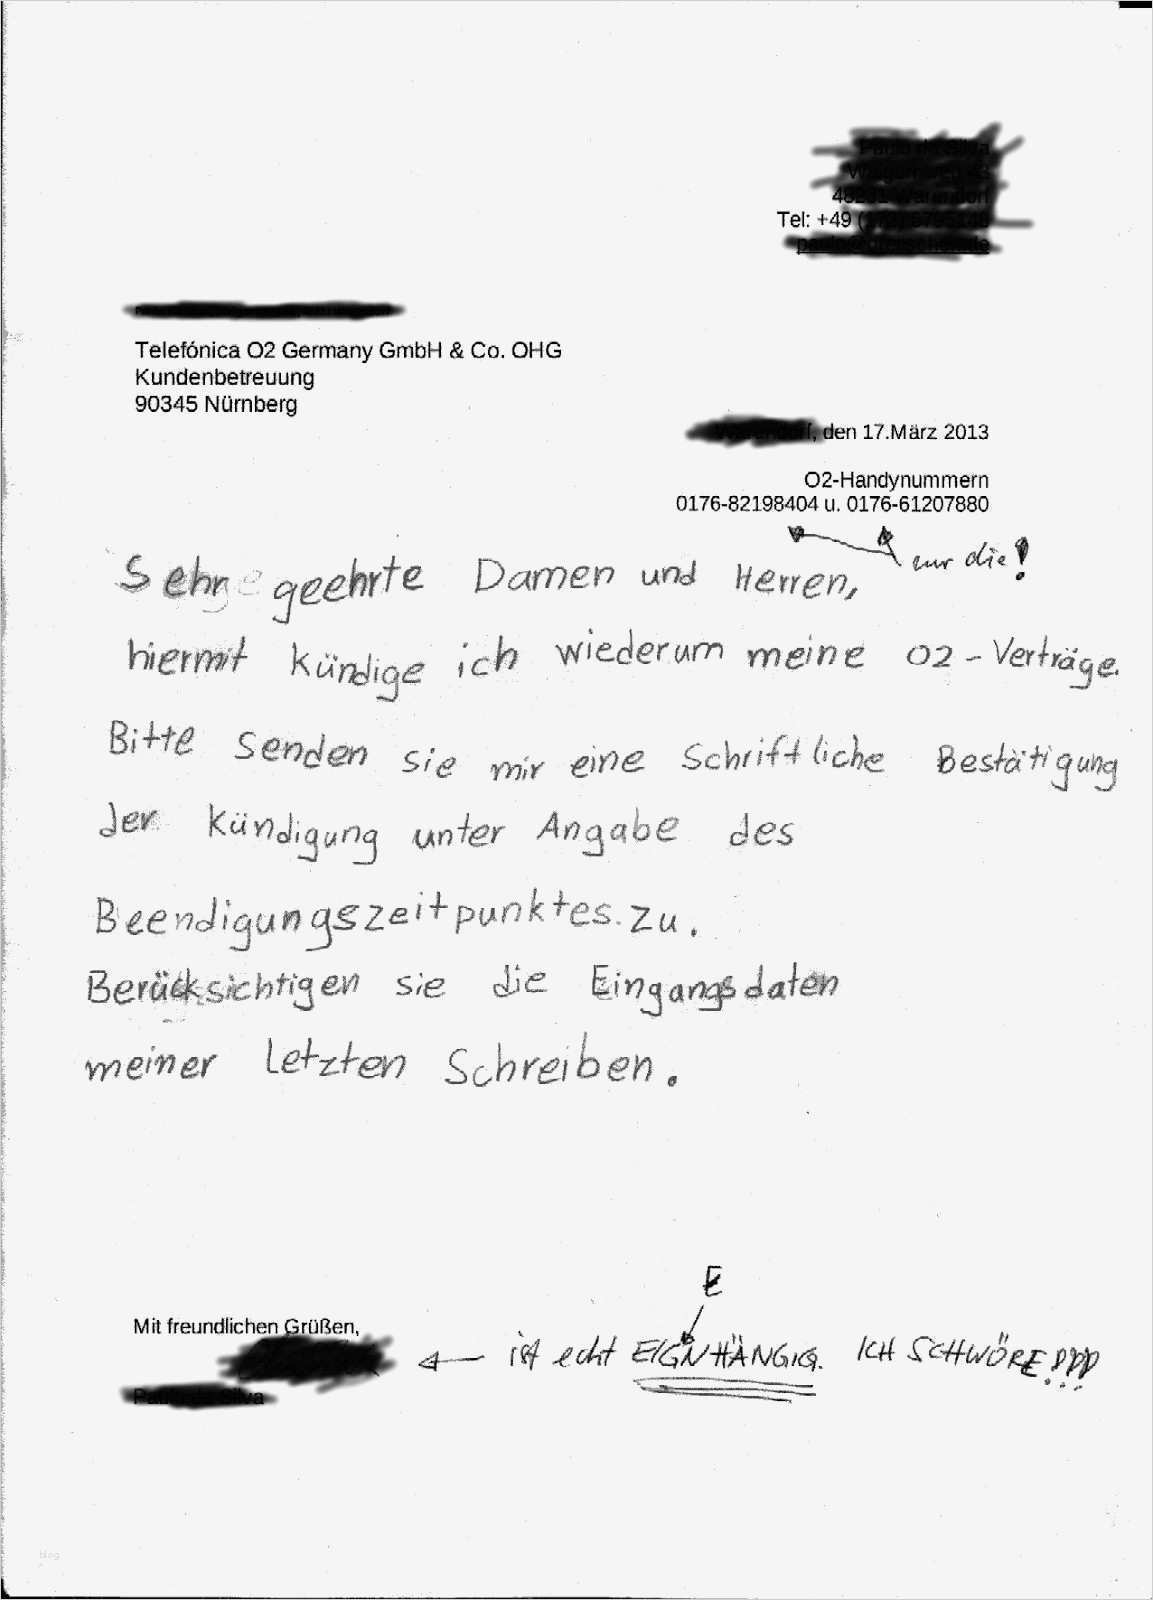 Tel: +49
Telefónica O2 Germany GmbH & Co. OHG
Kundenbetreuung
90345 Nürnberg
, den 17.März 2013
O2-Handynummern
0176-82198404 u. 0176-61207880
nur die!
Sehr geehrte Damen und Herren,
hiermit kündige ich wiederum meine O2-Verträge.
Bitte senden sie mir eine Schriftliche Bestätigung
der Kündigung unter Angabe des
Beendigungszeitpunktes zu.
Berücksichtigen sie die Eingangsdaten
meiner letzten Schreiben.
E
Mit freundlichen Grüßen,
ist echt EIGNHÄNGIG. ICH SCHWÖRE!!!
blog